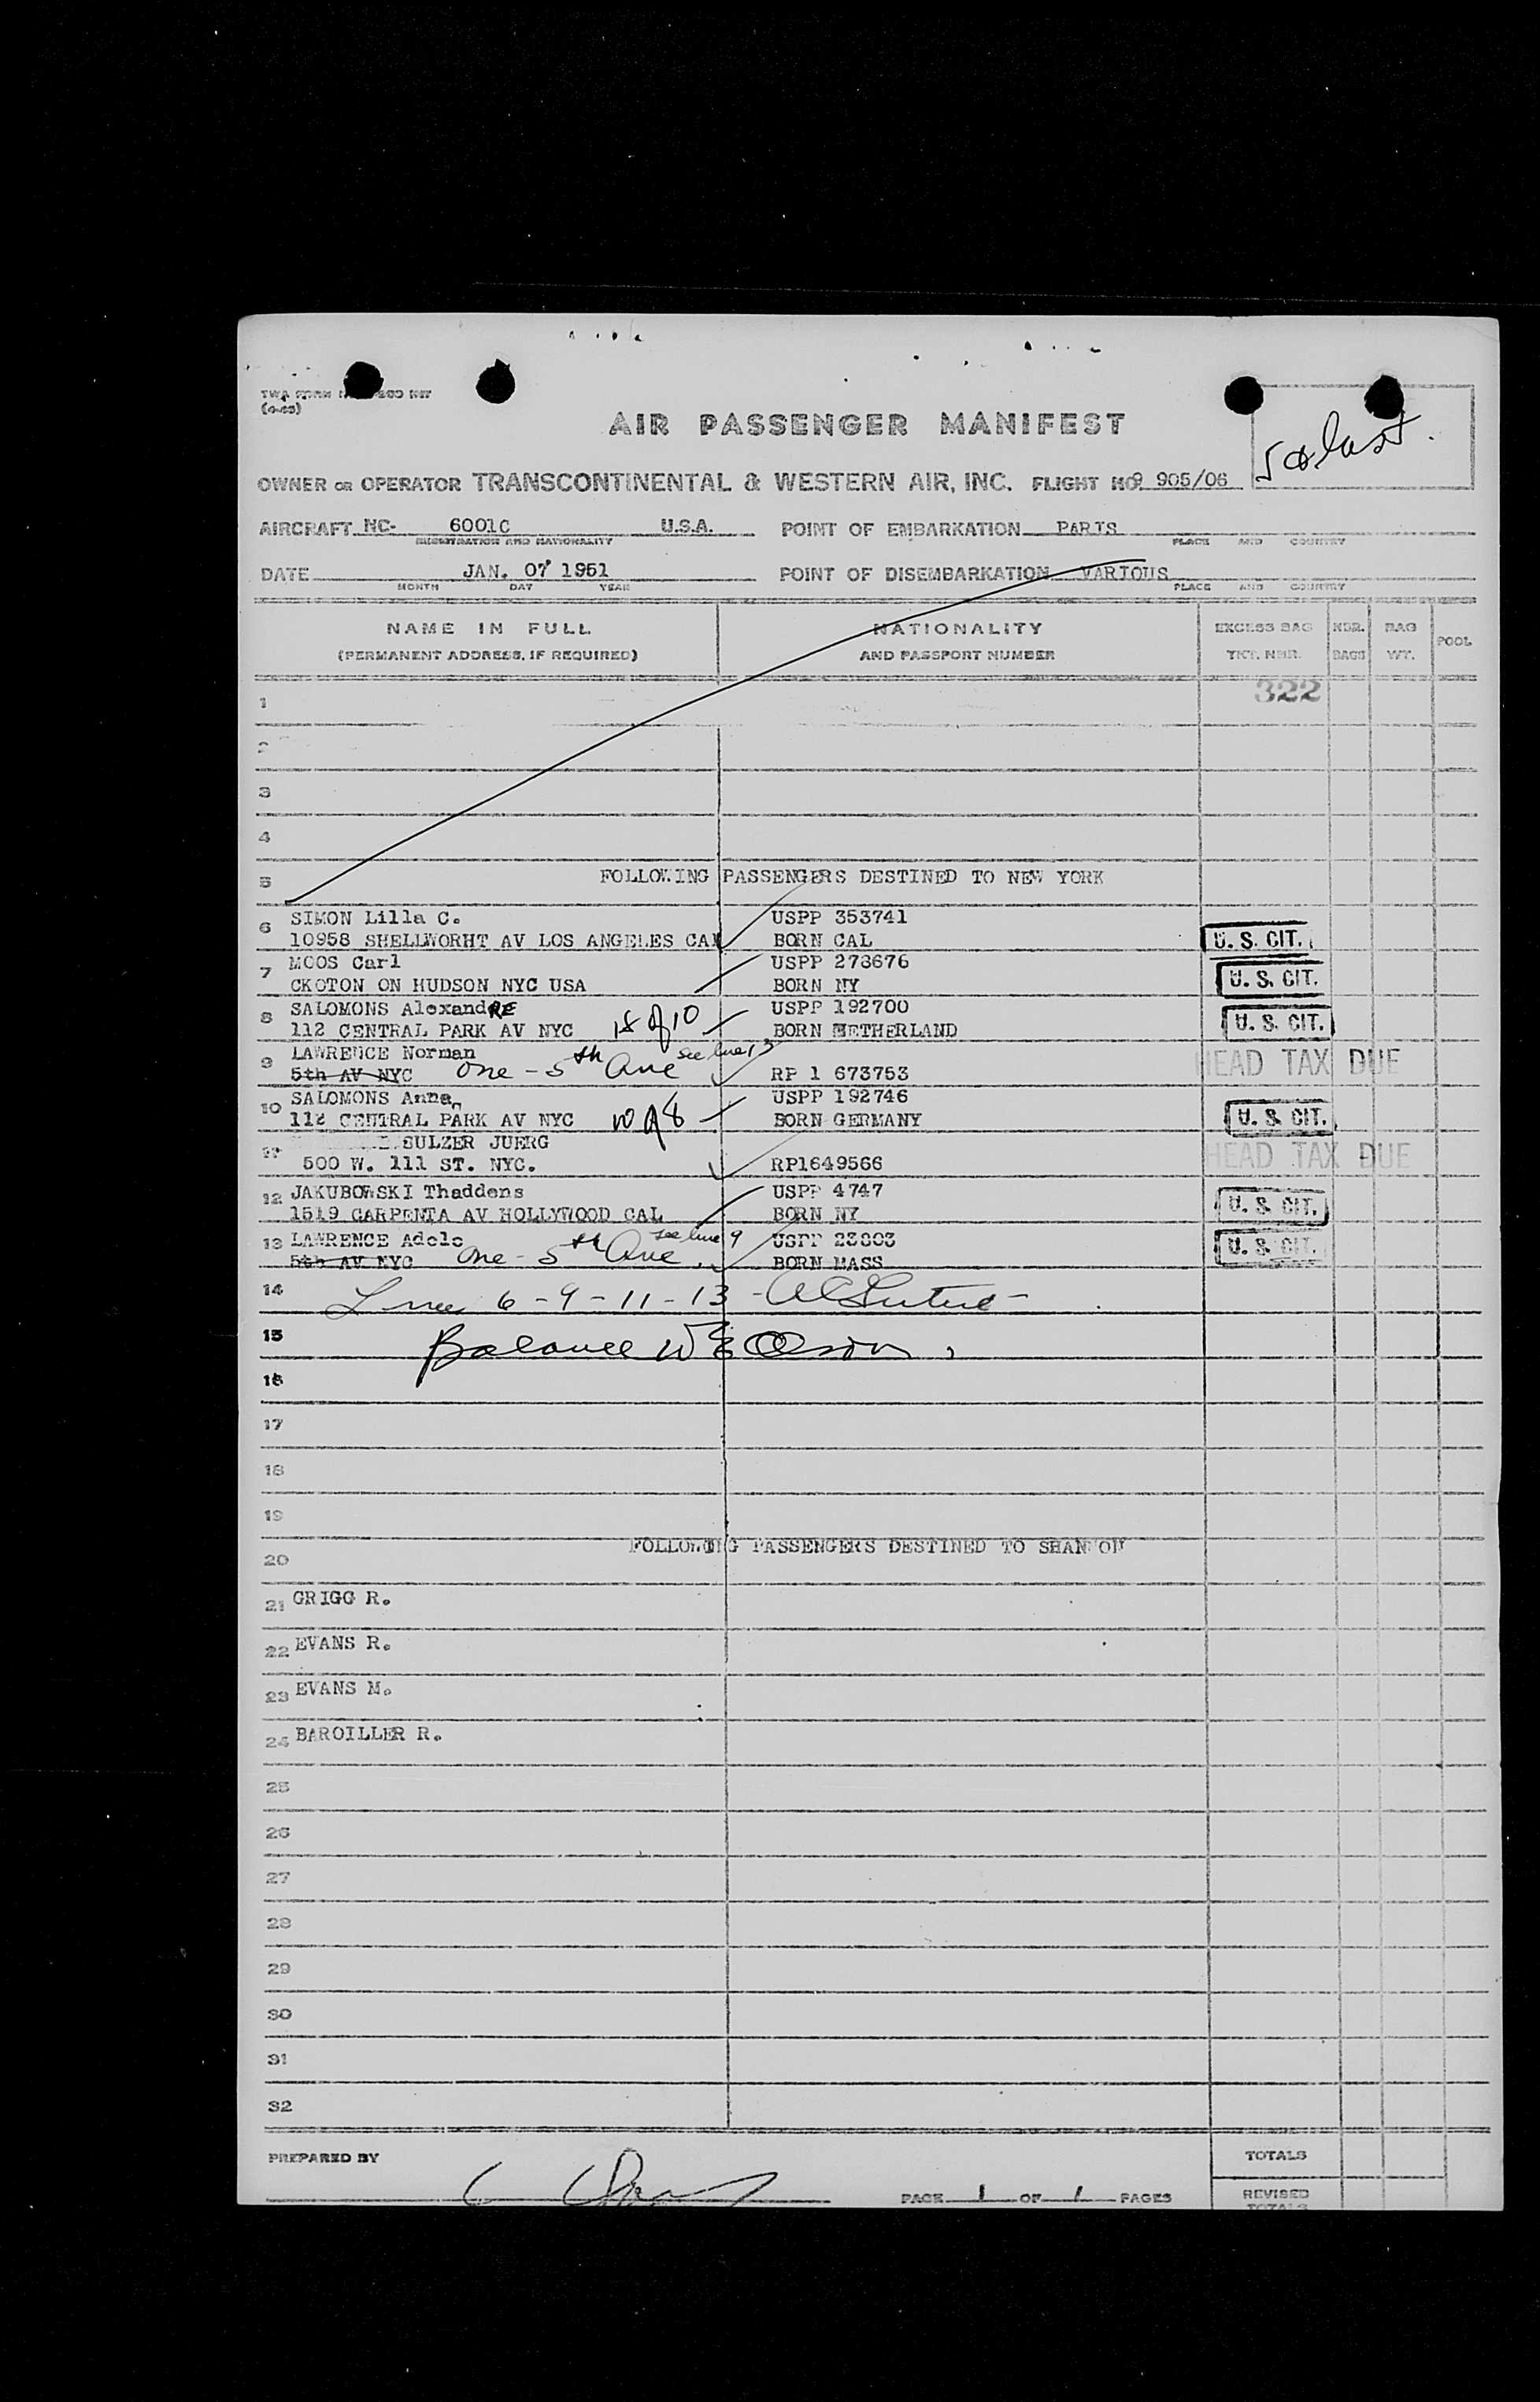 (4-50)
AIR PASSENGER MANIFEST
OWNER OR OPERATOR TRANSCONTINENTAL & WESTERN AIR, INC. FLIGHT NO 905/06
AIRCRAFT NC- 6001C U.S.A. POINT OF EMBARKATION PARIS
REGISTRATION AND NATIONALITY PLACE AND COUNTRY
DATE JAN. 07 1951 POINT OF DISEMBARKATION VARIOUS
MONTH DAY YEAR PLACE AND COUNTRY
NAME IN FULL NATIONALITY EXCESS BAG NBR. BAG POOL
(PERMANENT ADDRESS, IF REQUIRED) AND PASSPORT NUMBER TKT. NBR. BAGS WT.
1 322
2
3
4
5 FOLLOWING PASSENGERS DESTINED TO NEW YORK
6 SIMON Lilla C. USPP 353741
10958 SHELLWORHT AV LOS ANGELES CAL BORN CAL U. S. CIT.
7 MOOS Carl USPP 278676
CKOTON ON HUDSON NYC USA BORN NY U. S. CIT.
8 SALOMONS AlexandRE USPP 192700
112 CENTRAL PARK AV NYC BORN NETHERLAND U. S. CIT.
9 LAWRENCE Norman see line 13 HEAD TAX DUE
5th AV NYC One - 5th Ave RP 1 673753
10 SALOMONS Anna USPP 192746
112 CENTRAL PARK AV NYC BORN GERMANY U. S. CIT.
11 SULZER JUERG HEAD TAX DUE
500 W. 111 ST. NYC. RP1649566
12 JAKUBOWSKI Thaddens USPP 4747
1519 CARPENTA AV HOLLYWOOD CAL BORN NY U. S. CIT.
13 LAWRENCE Adele see line 9 USPP 23803
5th AV NYC One - 5th Ave. BORN MASS U. S. CIT.
14 Lines 6 - 9 - 11 - 13 -
15 Balance W E Olson
16
17
18
19
20 FOLLOWING PASSENGERS DESTINED TO SHANNON
21 GRIGG R.
22 EVANS R.
23 EVANS M.
24 BAROILLER R.
25
26
27
28
29
30
31
32
PREPARED BY TOTALS
PAGE 1 OF 1 PAGES REVISED
TOTALS